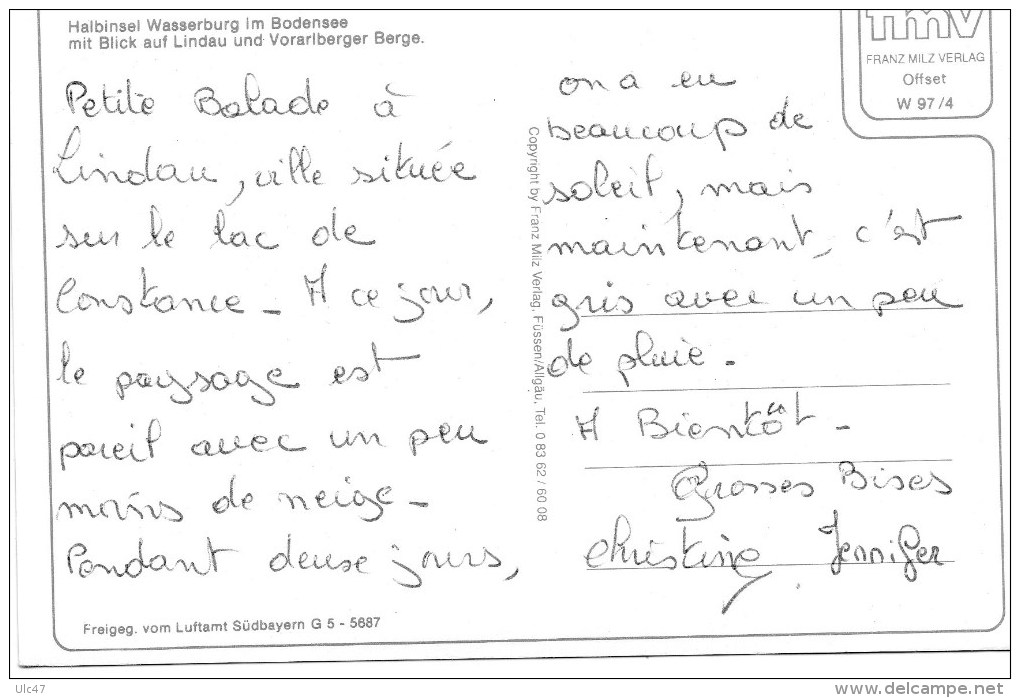 Halbinsel Wasserburg im Bodensee
mit Blick auf Lindau und Vorarlberger Berge.
Petite Balade à
Lindau, ville située
sur le lac de
Constance - A ce jour,
le paysage est
pareil avec un peu
moins de neige -
Pendant deux jours,
Freigeg. vom Luftamt Südbayern G 5 - 5687
Copyright by Franz Milz Verlag, Füssen/Allgäu, Tel. 0 83 62 / 60 08
TMV
FRANZ MILZ VERLAG
Offset
W 97/4
on a eu
beaucoup de
soleil, mais
maintenant, c'est
gris avec un peu
de pluie -
A Bientôt -
Grosses Bises
Christine Jennifer
Ulc47
www.delcampe.net